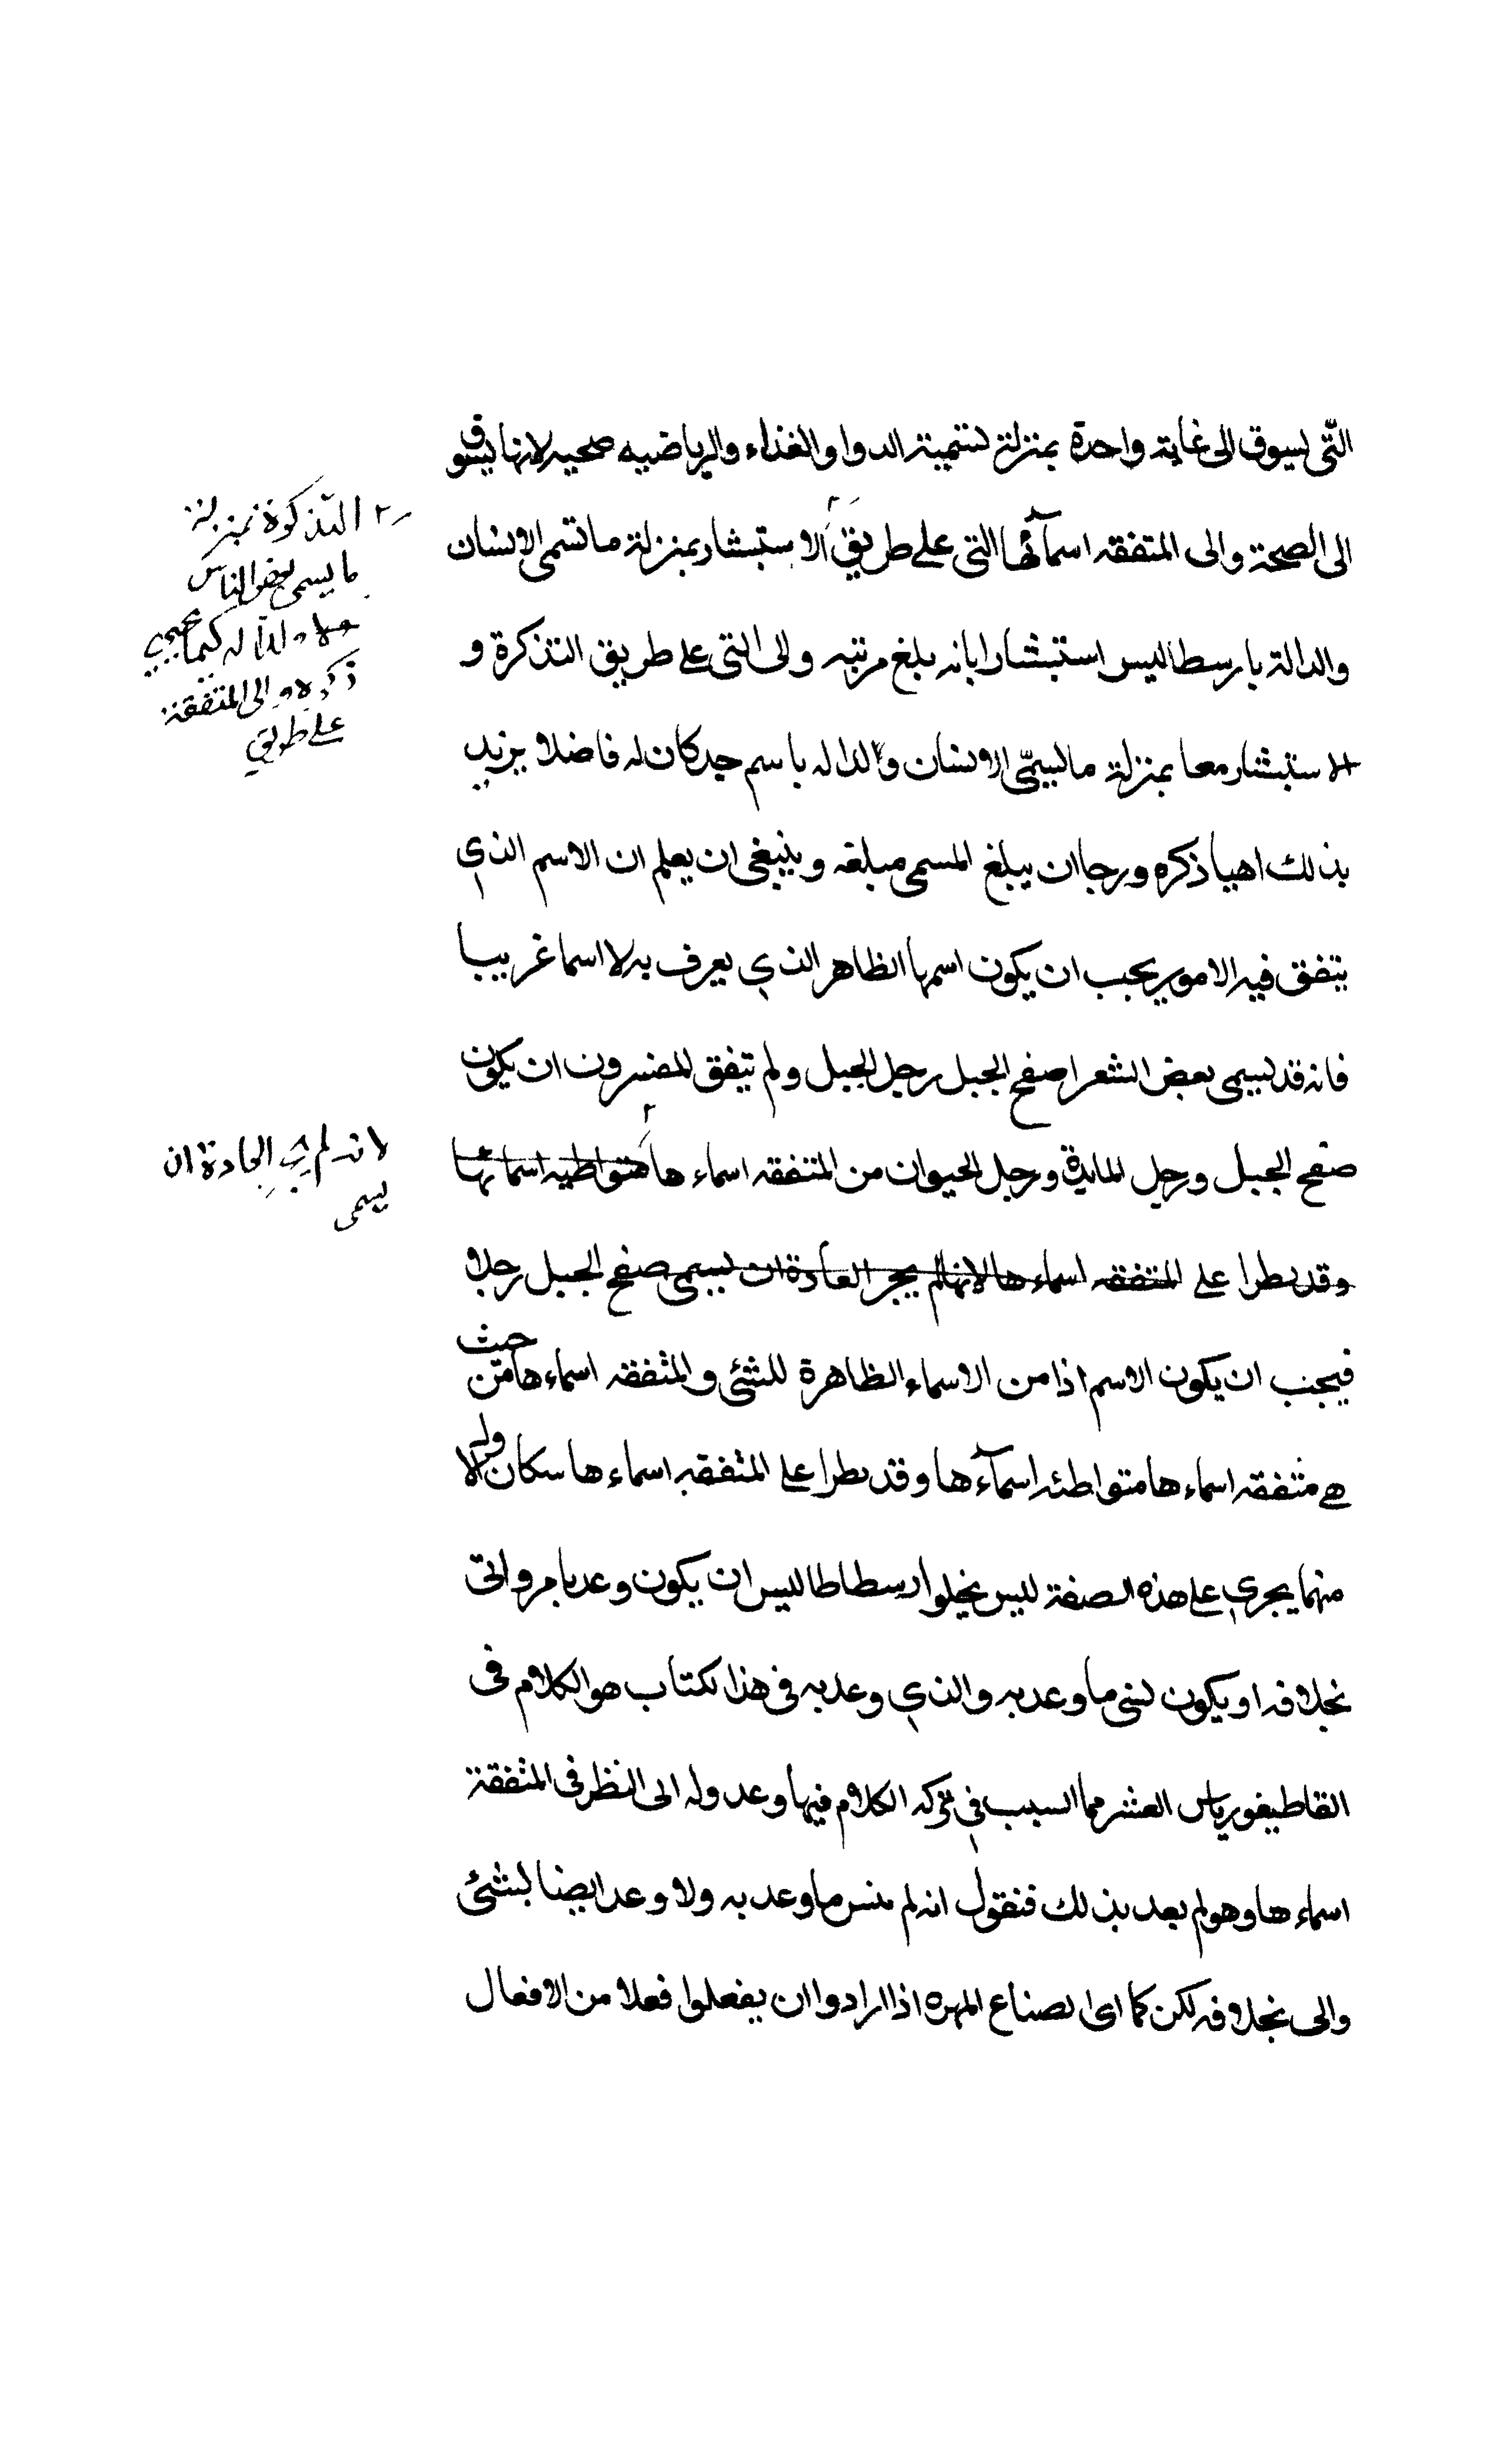 التّى لسيوق الى غاية واحدة بمنزلة لتسمية الدوا والغذاء والرياضيه صحيه لانها ليسوق
الى الصحة والى المتفقه اسمآئها التى على طريق الاستبشار بمنزلة ما نسمى الانسان
والدالة بارسطاليس استبشارا بانه بلغ مرتبه والى التى على طريق التذكرة و
الاستبشار معا بمنزلة ما لسيمّى الانسان والداله باسم جد كان له فاضلا يزيد
بذلك احيا ذكره ورجا ان يبلغ المسمى مبلغه وينبغى ان يعلم ان الاسم الذى
يتفق فيه الامور يجب ان يكون اسمها الظاهر الذى يعرف به لا اسما غريبا
فانه قد لسيمى بعض الشعرا صفح الجبل رجل الجبل ولم تيفق المفسرون ان يكون
صفح الجبل ورجل المايدة ورجل الحيوان من المتفقه اسماء ها متواطيه اسمائها
وقد يطرا على المتفقه اسماء ها لانها لم يجر العادة ان ليسمى صفح الجبل رجلا
فيجب ان يكون الاسم اذا من الاسماء الظاهرة للشئى والمتفقه اسماء ها من حيث
هى متفقه اسماء ها متواطئه اسمآء ها وقد يطرا على المتفقه اسماء ها سكان ولا
منهما يجرى على هذه الصفة ليس يخلوا ارسطاطاليس ان يكون وعد بامر واتى
بخلافه او يكون لنسى ما وعد به والذى وعد به فى هذا لكتاب هو الكلام فى
القاطيغورياس العشر مما السبب فى تركه الكلام فيها وعدوله الى النظر فى المتفقة
اسماء ها وهو لم يعد بذلك فنقول انه لم ينس ما وعد به ولا وعد ايضا لبشئى
والى بخلافه لكن كما اى الصناع المهره اذا ارادوا ان يفعلوا فعلا من الافعال
التذكرة بمنزلة
ما يسمى بعض الناس
والداله كيما يحيى
ذكره والى المتفقة
على طريق
لانه لم يجر الجادة ان
يسمى